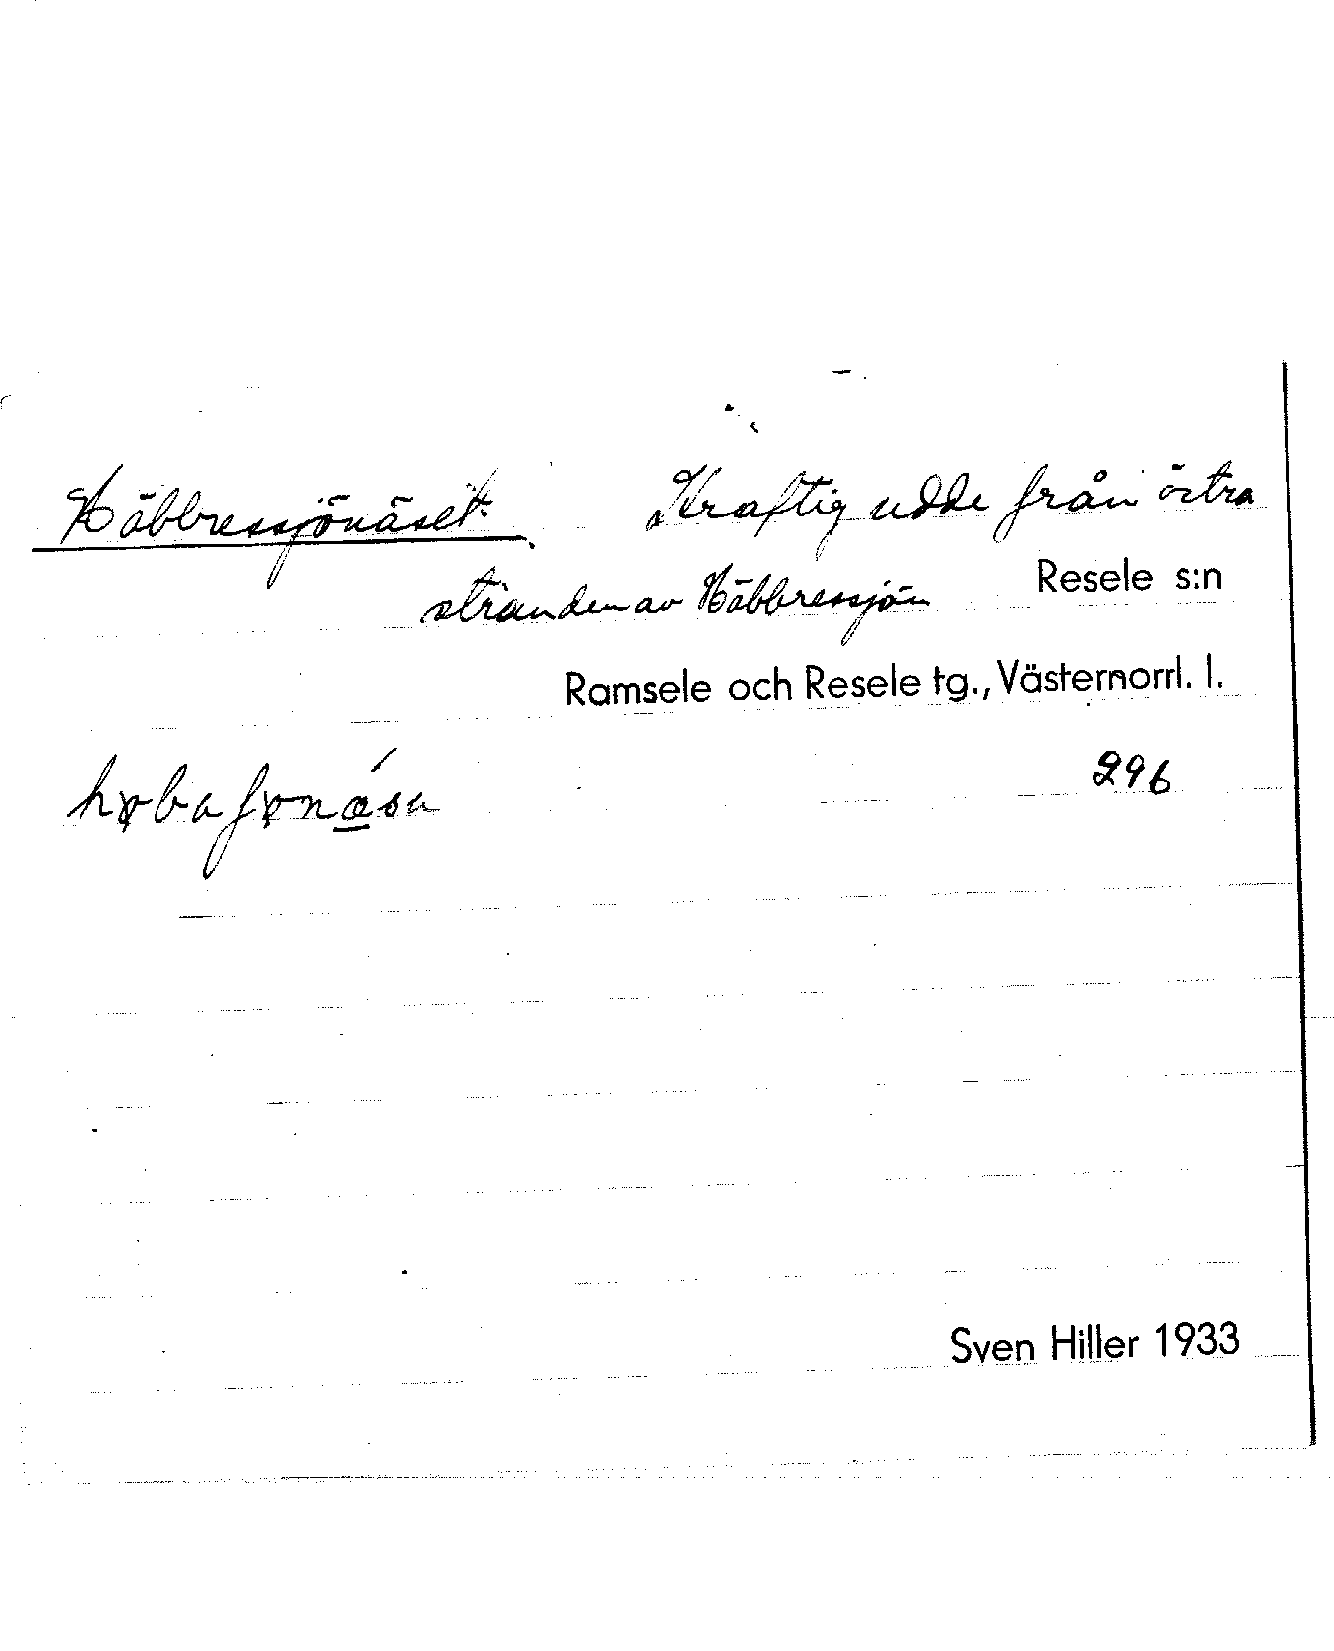 Häbbressjönäset. Kraftig udde från östra
stranden av Häbbressjön Resele s:n
Ramsele och Resele tg., Västernorrl. l.
296
Sven Hiller 1933